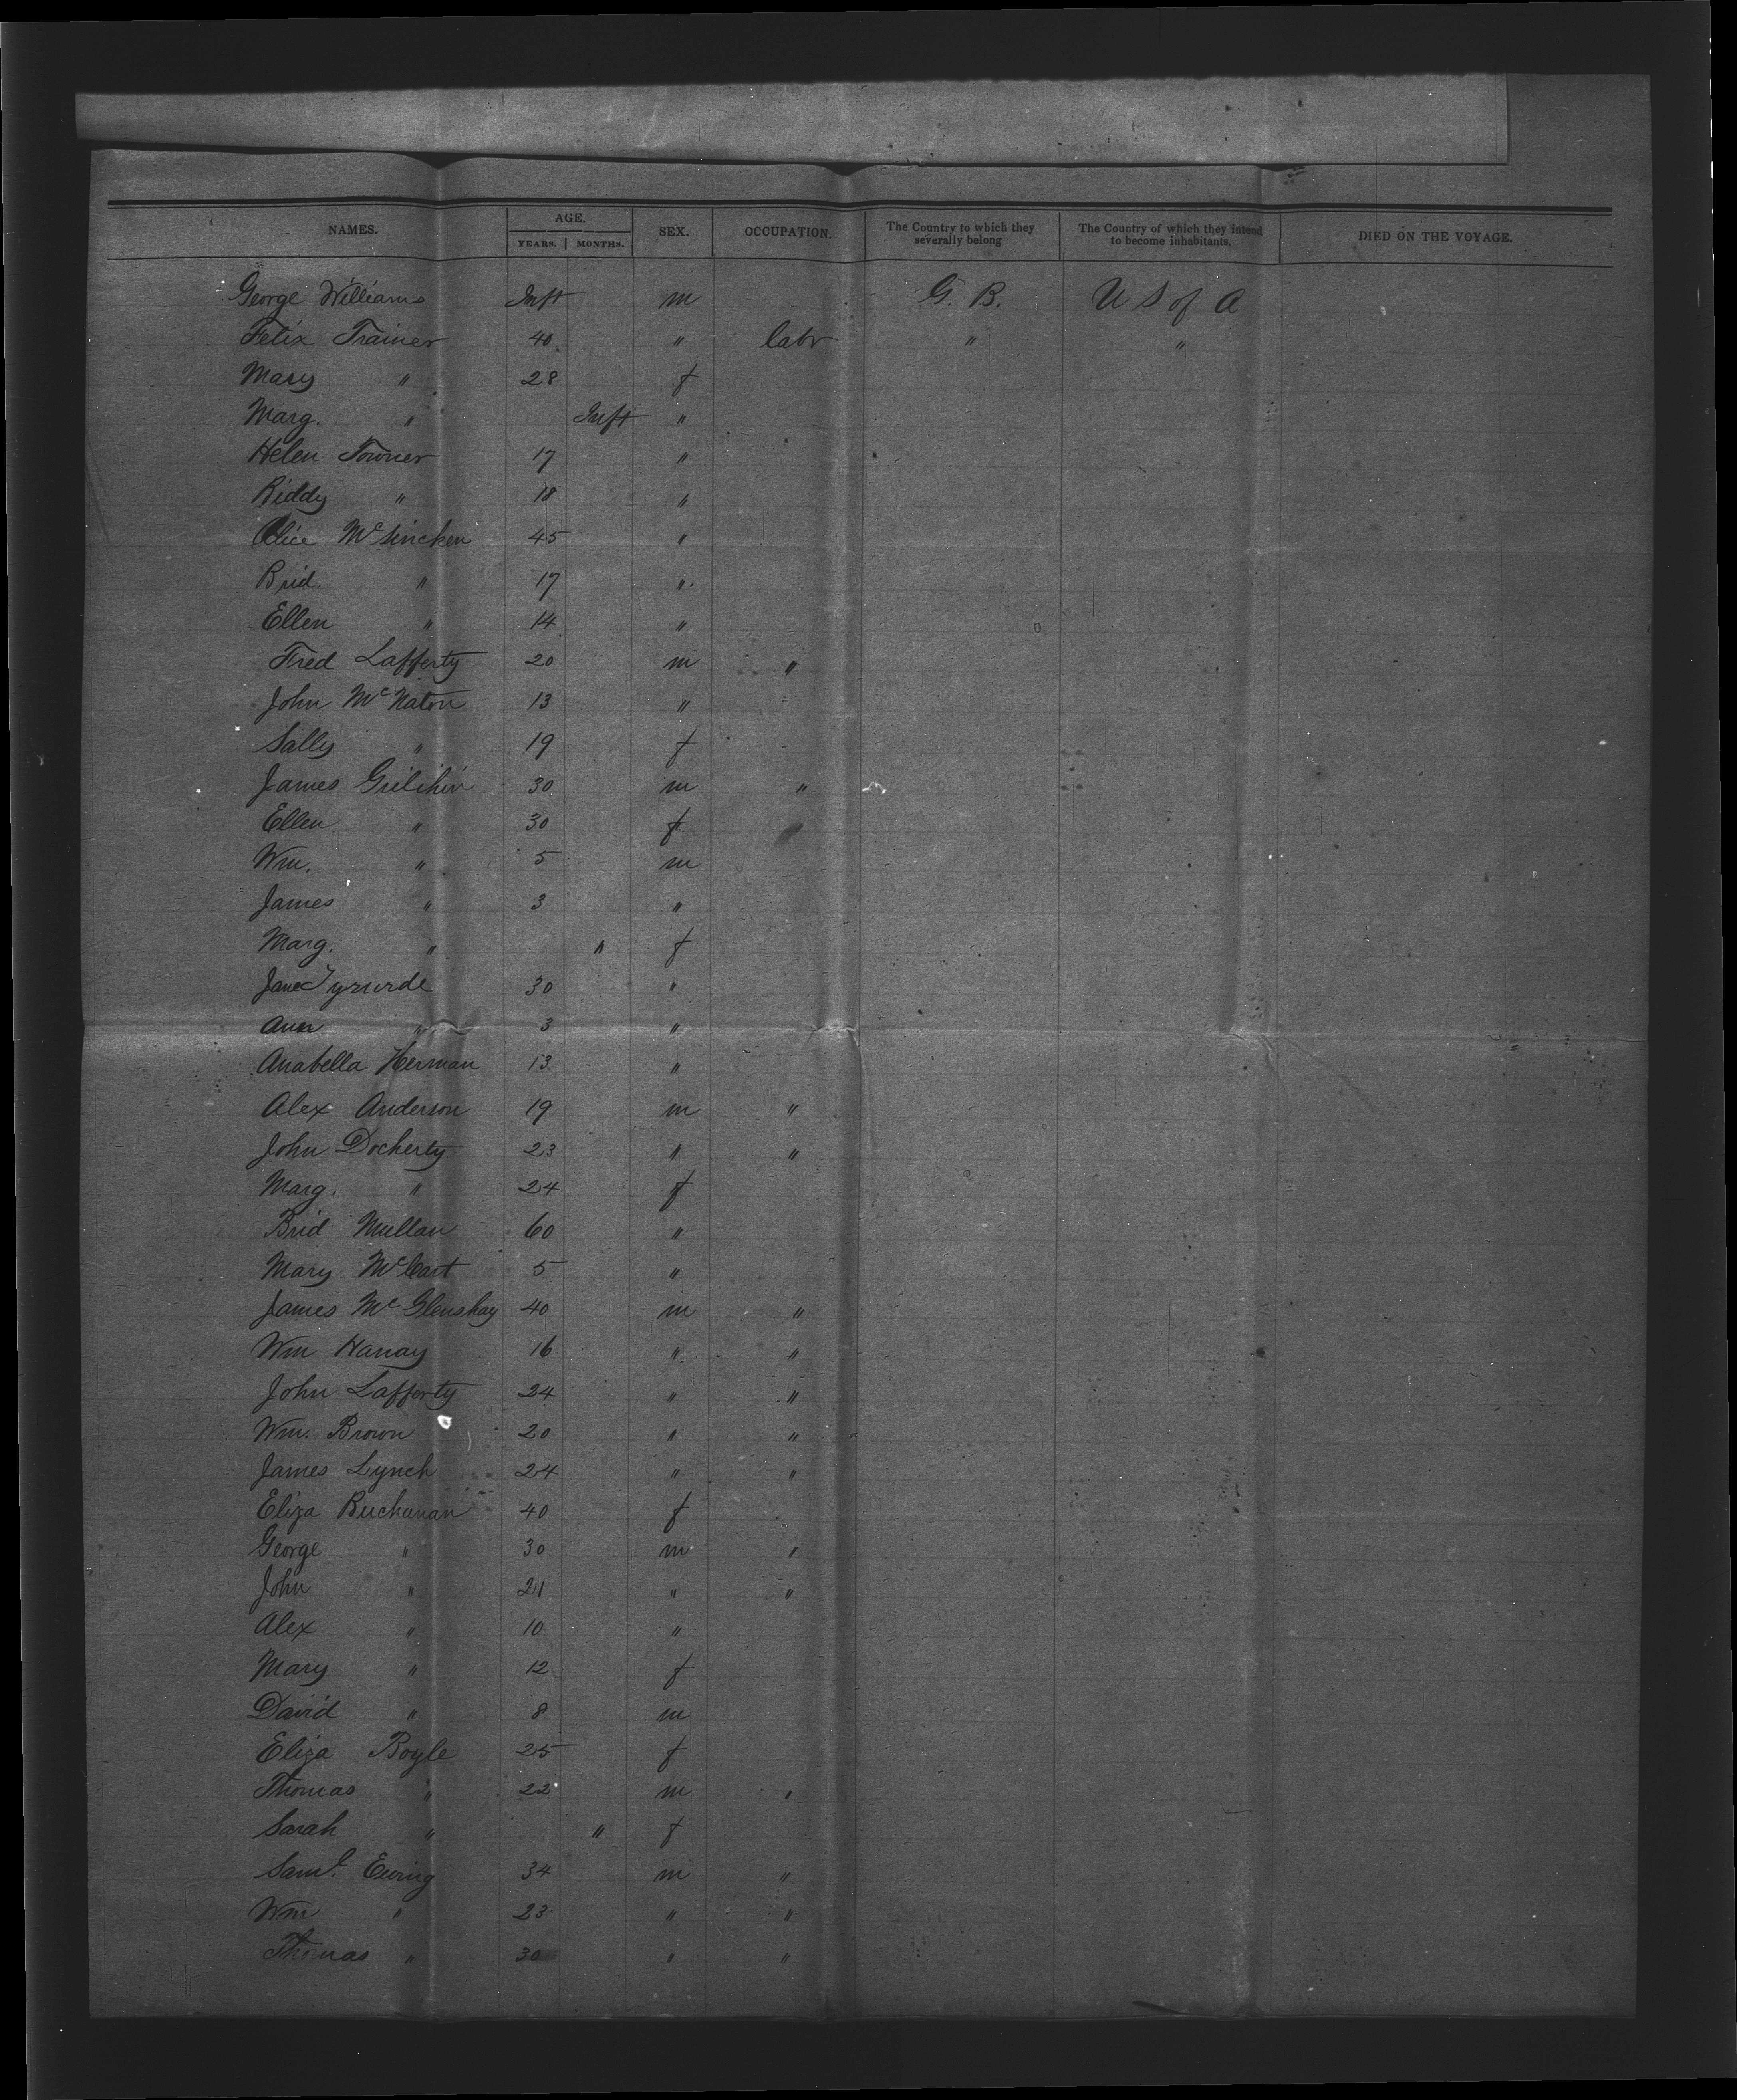 NAMES. AGE. YEARS. MONTHS. SEX. OCCUPATION. The Country to which they severally belong The Country of which they intend to become inhabitants. DIED ON THE VOYAGE.
George Williams Inft m G. B. U S of A
Felix Trainer 40 " labr " "
Mary " 28 f
Marg. " Inft "
Helen Towner 17 "
Biddy " 18 "
Alice 45 "
Brid. " 17 "
Ellen " 14 "
Fred Lafferty 20 m "
John McNaton 13 "
Sally " 19 f
James 30 m "
Ellen " 30 f
Wm. " 5 m
James " 3 "
Marg. " " f
Jane 30 "
Ann " 3 "
Anabella Herman 13 "
Alex Anderson 19 m "
John Docherty 23 " "
Marg. " 24 f
Brid Mullan 60 "
Mary McCart 5 "
James McGlenshay 40 m "
Wm Hanay 16 " "
John Lafferty 24 " "
Wm. Brown 20 " "
James Lynch 24 " "
Eliza Buchanan 40 f
George " 30 m "
John " 21 " "
Alex " 10 "
Mary " 12 f
David " 8 m
Eliza Boyle 25 f
Thomas " 22 m "
Sarah " " f
Saml. Ewing 34 m "
Wm " 23 " "
Thomas " 30 " "